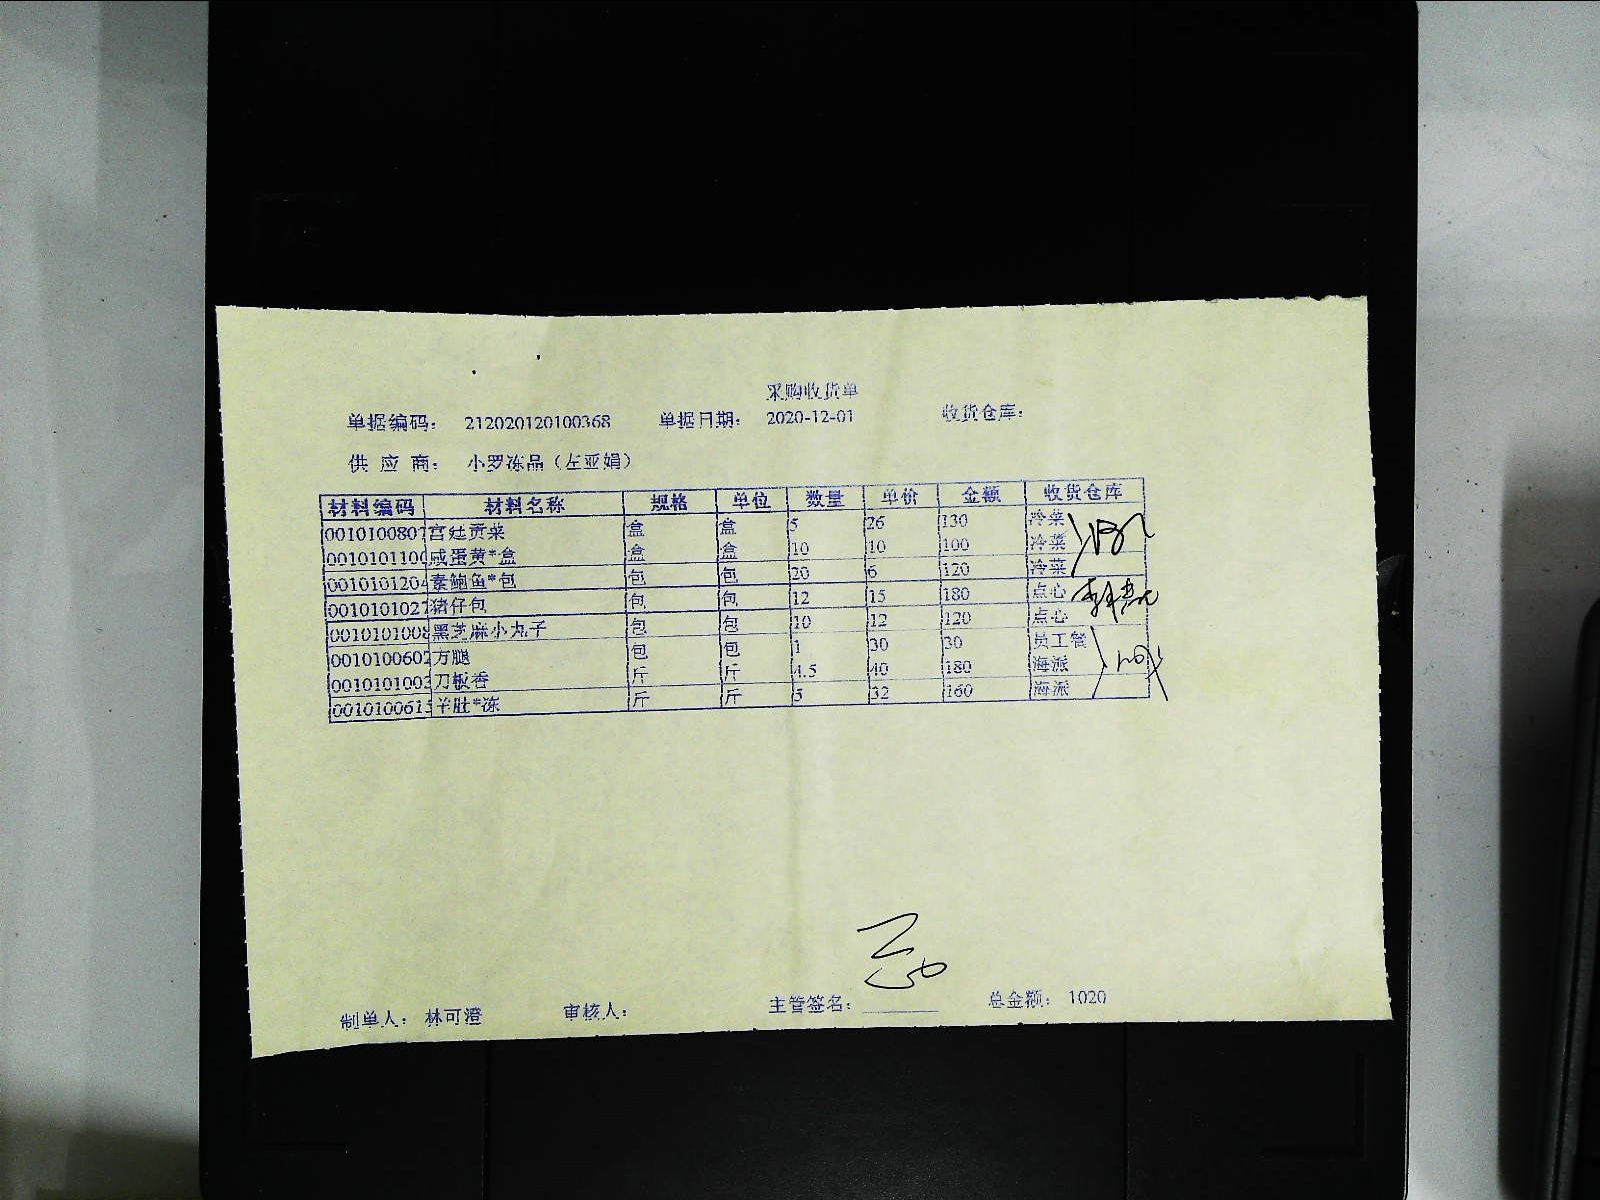 采购收货单
单据编码: 212020120100368 单据日期: 2020-12-01 收货仓库:
供 应 商: 小罗冻品（左亚娟）
材料编码 材料名称 规格 单位 数量 单价 金额 收货仓库
001010080 宫廷贡菜 盒 盒 5 26 130 冷菜
001010110 咸蛋黄*盒 盒 盒 10 10 100 冷菜
001010120 素鲍鱼*包 包 包 20 6 120 冷菜
001010102 猪仔包 包 包 12 15 180 点心
001010100 黑芝麻小丸子 包 包 10 12 120 点心
001010060 方腿 包 包 1 30 30 员工餐
001010100 刀板香 斤 斤 4.5 40 180 海派
001010061 羊肚*冻 斤 斤 5 32 160 海派
制单人: 林可澄 审核人: 主管签名: 总金额: 1020